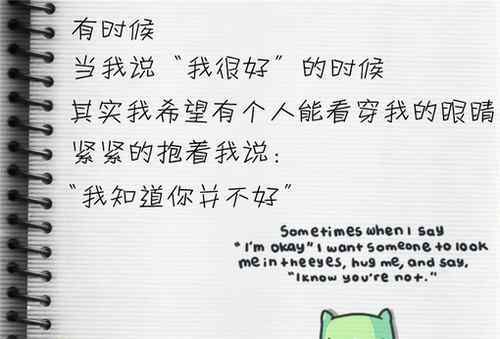 有时候
当我说“我很好”的时候
其实我希望有个人能看穿我的眼睛
紧紧的抱着我说:
“我知道你并不好”
Sometimes when I say
"I'm okay" I want someone to look
me in theeyes, hug me, and say,
"Iknow you're not."